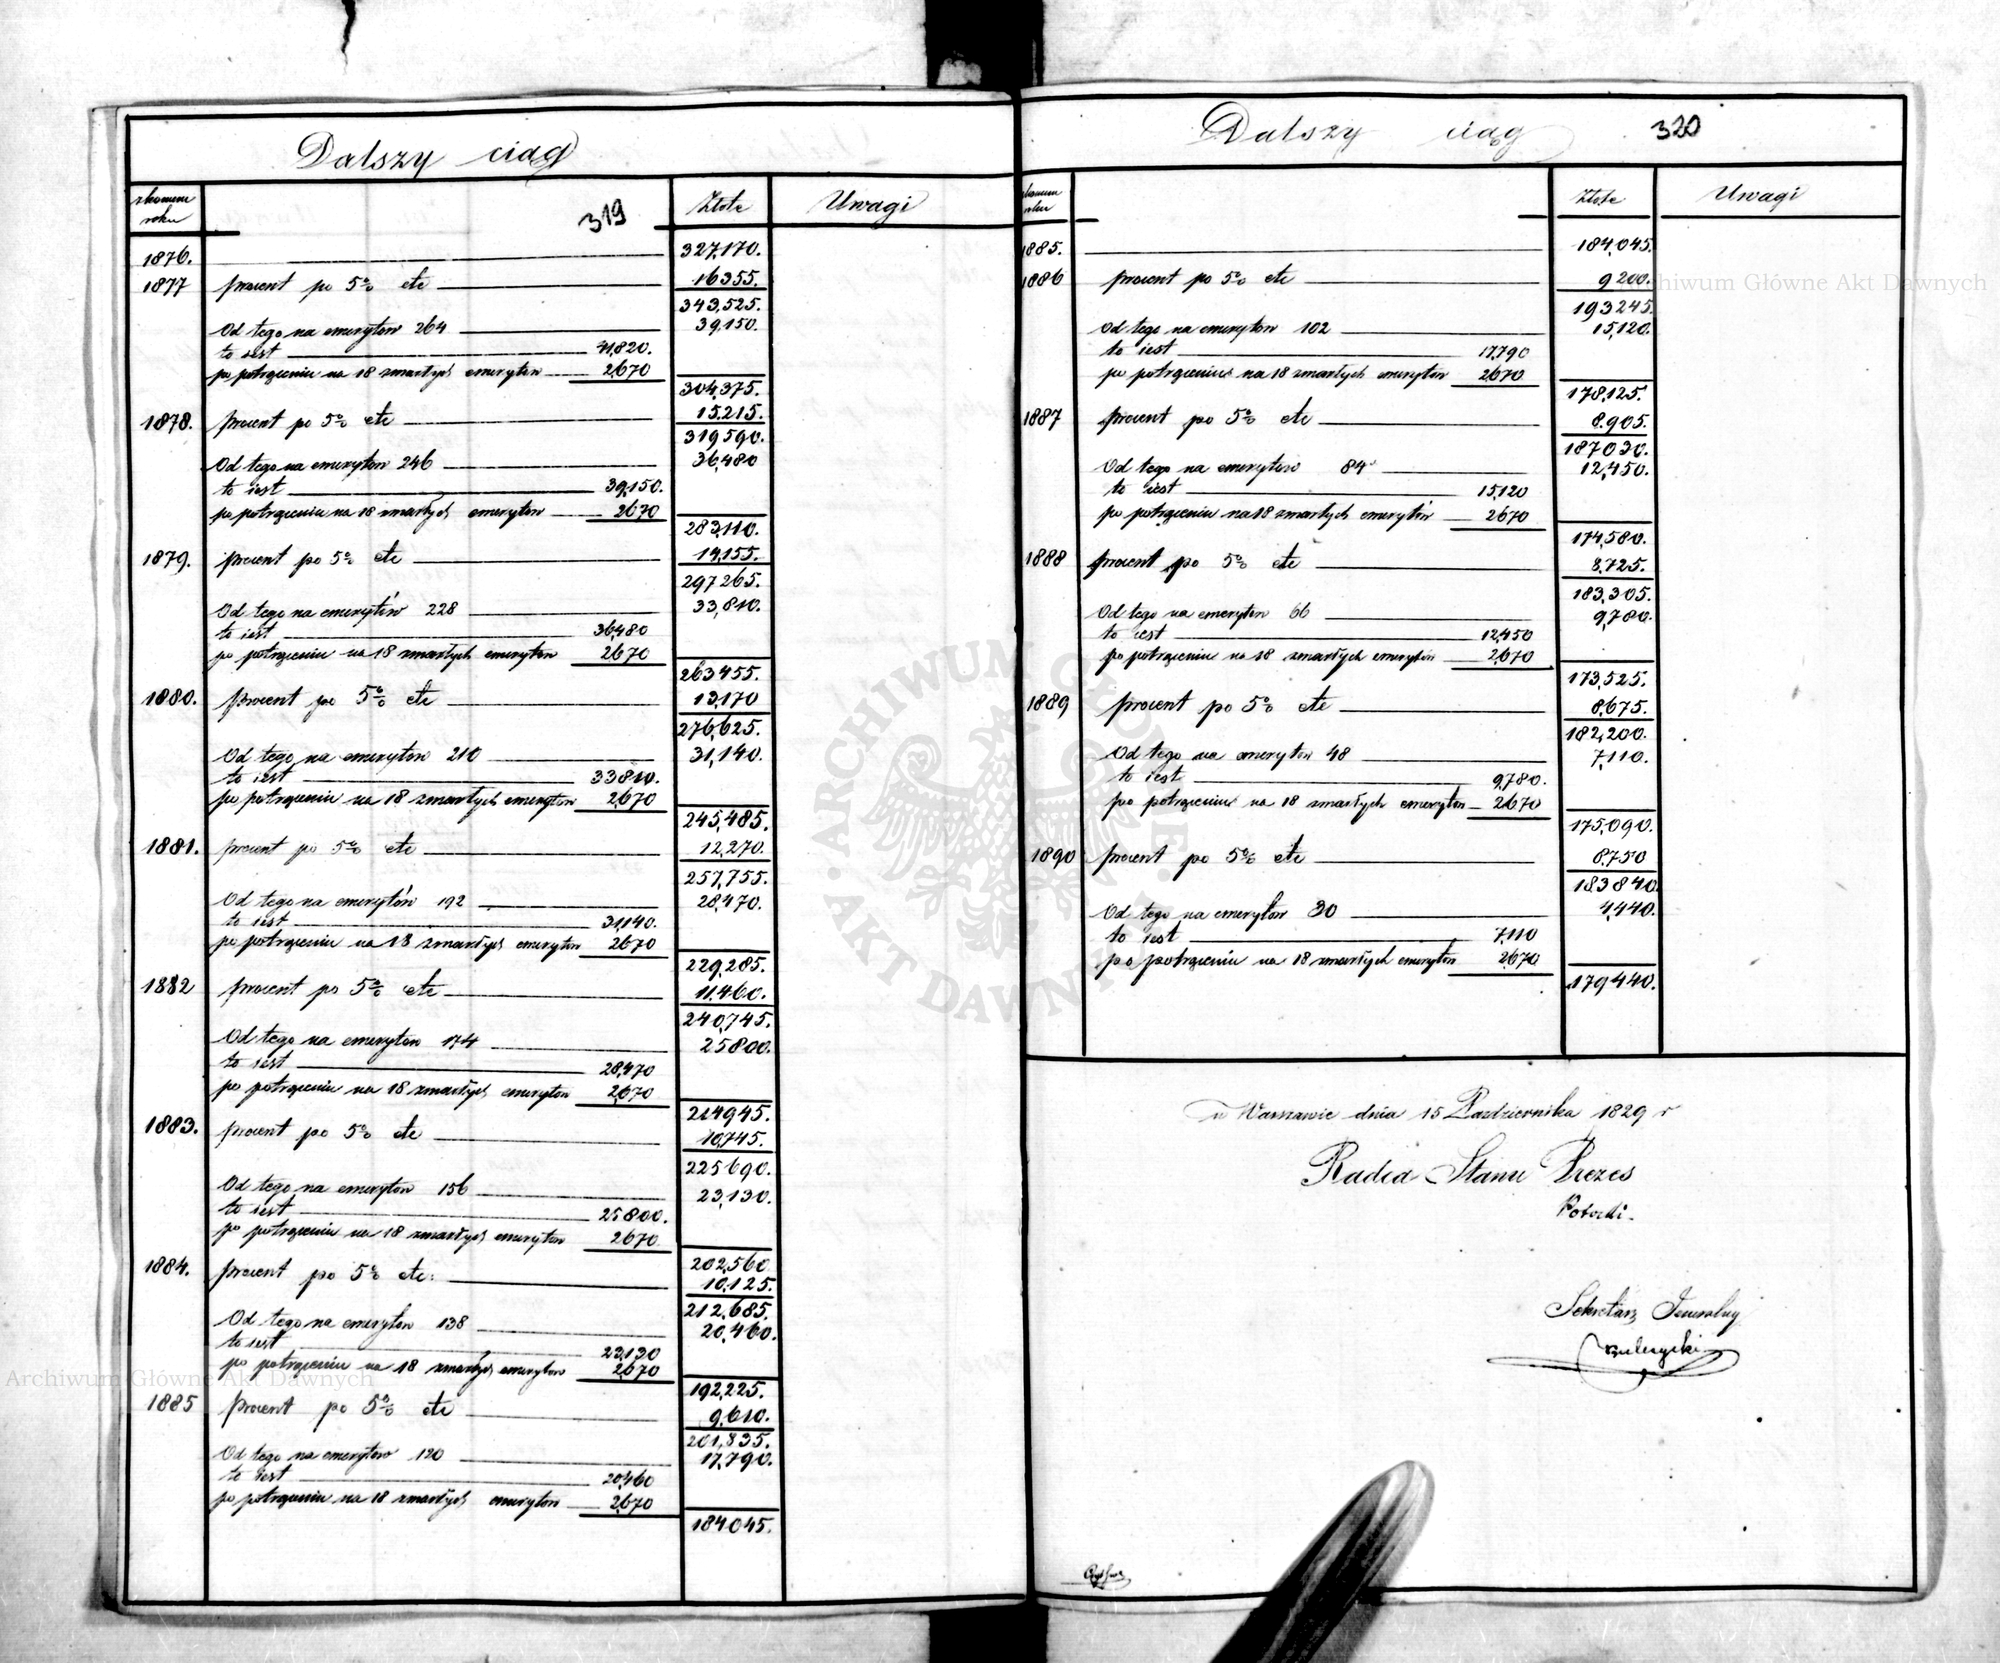 Dalszy ciąg
z koncem roku
319
Złote
Uwagi
1876. 327,170.
1877 procent po 5% etc 16355.
343,525.
Od tego na emerytow 264 39,150.
to iest 41,820.
po potrąceniu na 18 zmarłych emerytow 2,670
304,375.
1878. procent po 5% etc 15.215.
319590.
Od tego na emerytow 246 36,480
to iest 39,150.
po potrąceniu na 18 zmarłych emerytow 2670
283,110.
1879. procent po 5% etc 14,155.
297265.
Od tego na emerytów 228 33,810.
to iest 36,480
po potrąceniu na 18 zmarłych emerytow 2670
263455.
1880. procent po 5% etc 13,170
276,625.
Od tego na emerytow 210 31,140.
to iest 33810.
po potrąceniu na 18 zmarłych emerytow 2,670
245,485.
1881. procent po 5% etc 12,270.
257,755.
Od tego na emerytów 192 28,470.
to iest 31,140.
po potrąceniu na 18 zmarłych emeryton 2670
229,285.
1882 procent po 5% etc 11,460.
240,745.
Od tego na emerytow 174 25800.
to iest 28,470
po potrąceniu na 18 zmarłych emerytow 2,670
214945.
1883. procent po 5% etc 10,745.
225690.
Od tego na emerytow 156 23,130.
to iest 25800.
po potrąceniu na 18 zmarłych emerytow 2670
202,560
1884. procent po 5% etc: 10,125.
212,685.
Od tego na emerytow 138 20,460.
to iest 23,130
po potrąceniu na 18 zmarłych emerytow 2670
192,225.
1885 procent po 5% etc 9,610.
201,835.
Od tego na emerytow 120 17,790.
to iest 20,460
po potrąceniu na 18 zmarłych emerytow 2,670
184045.
Dalszy ciąg 320
z koncem roku
Złote
Uwagi
1885. 184,045.
1886 procent po 5% etc 9200.
193245.
Od tego na emerytow 102 15,120.
to iest 17,790
po potrąceniu na 18 zmarłych emerytow 2670
178,125.
1887 procent po 5% etc 8.905.
187030.
Od tego na emerytow 84 12,450.
to iest 15,120
po potrąceniu na 18 zmarłych emerytów 2670
174,580.
1888 procent po 5% etc 8,725.
183,305.
Od tego na emerytow 66 9,780.
to iest 12,450
po potrąceniu na 18 zmarłych emerytow 2,670
173,525.
1889 procent po 5% etc 8,675.
182,200.
Od tego na emerytow 48 7,110.
to iest 9,780.
po potrąceniu na 18 zmarłych emerytow 2670
175,090.
1890 procent po 5% etc 8,750
183840.
Od tego na emerytow 30 4,440.
to iest 7,110
po potrąceniu na 18 zmarłych emerytow 2,670
179440.
w Warszawie dnia 15 Października 1829 r
Radca Stanu Prezes
Potocki.
Sekretarz Jeneralny
Archiwum Główne Akt Dawnych
Archiwum Główne Akt Dawnych
ARCHIWUM GŁÓWNE AKT DAWNYCH